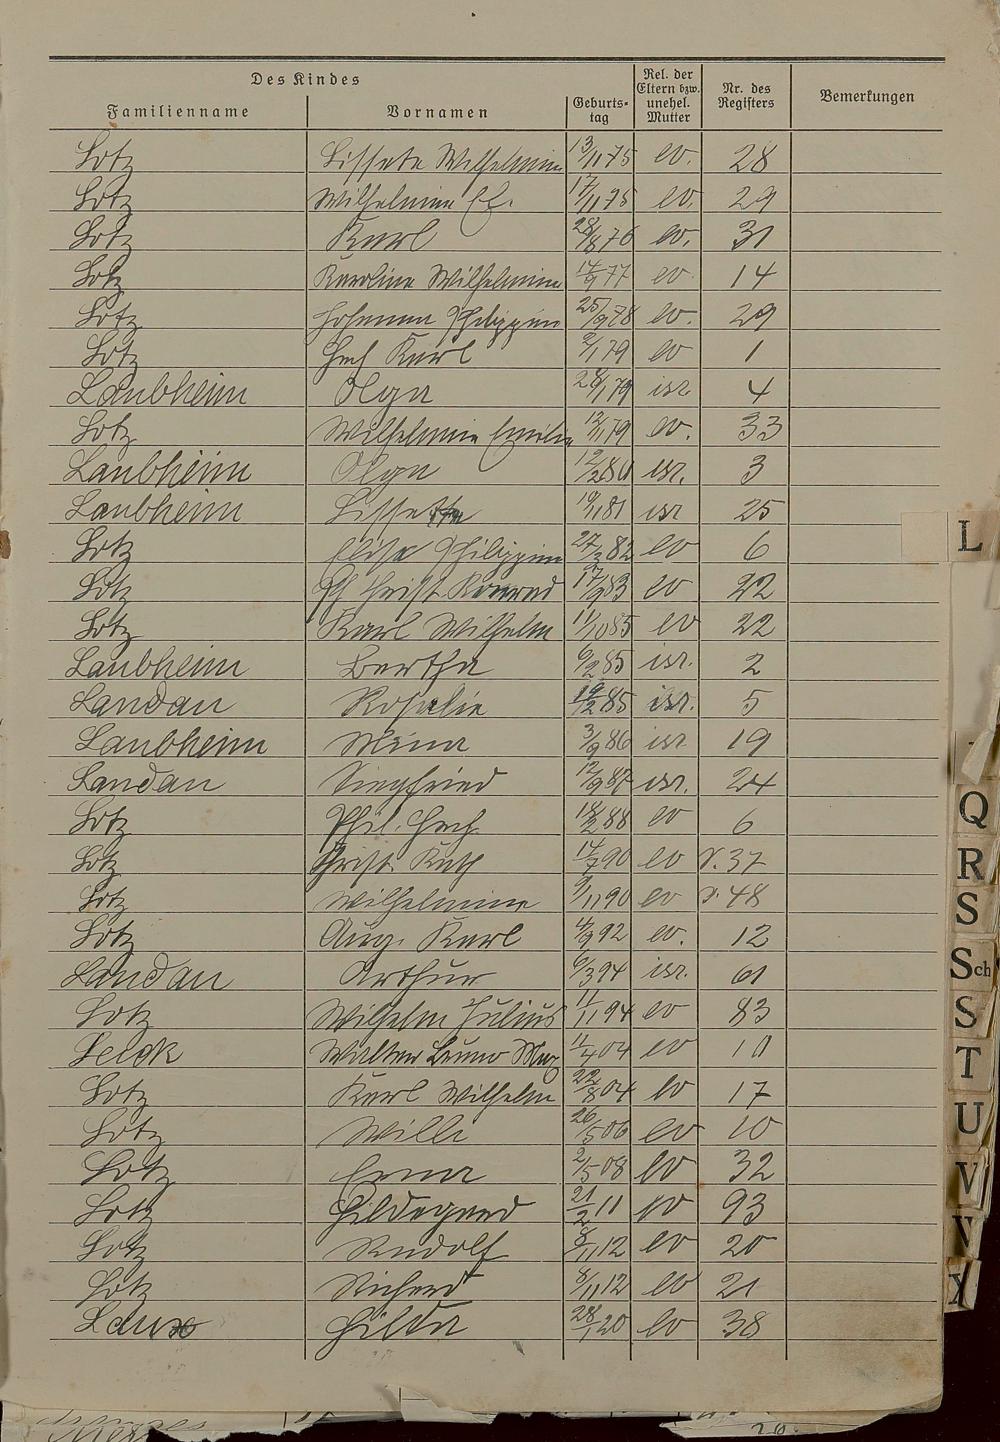 Des Kindes
Familienname Vornamen Geburts-tag Rel. der Eltern bzw. unehel. Mutter Nr. des Registers Bemerkungen
Lotz Lissete Wilhelmine 13/11 75 ev. 28
Lotz Wilhelmine El. 17/11 75 ev. 29
Lotz Karl 28/8 76 ev. 31
Lotz Karoline Wilhelmine 14/9 77 ev. 14
Lotz Johanna Philippine 25/9 78 ev. 29
Lotz Hch Karl 2/1 79 ev 1
Laubheim Olga 28/1 79 isr. 4
Lotz Wilhelmine Emilie 12/11 79 ev. 33
Laubheim Olga 12/2 80 isr. 3
Laubheim Lissette 19/11 81 isr 25
Lotz Elise Philippine 27/3 82 ev 6
Lotz Ph Christ Konrad 17/9 83 ev 22
Lotz Karl Wilhelm 11/10 85 ev 22
Laubheim Bertha 6/2 85 isr. 2
Landau Rosalie 19/2 85 isr. 5
Laubheim Mina 3/9 86 isr 19
Landau Siegfried 12/9 87 isr. 24
Lotz Phil. Hch 18/2 88 ev 6
Lotz Christ. Kath 14/7 90 ev 37
Lotz Wilhelmine 9/11 90 ev 48
Lotz Aug. Karl 4/9 92 ev. 12
Landau Arthur 6/3 94 isr. 61
Lotz Wilhelm Julius 11/11 94 ev 83
Leick Walter Bruno Max 11/4 04 ev 10
Lotz Karl Wilhelm 22/8 04 ev 17
Lotz Willi 26/5 06 ev 10
Lotz Erna 2/5 08 ev 32
Lotz Hildegard 21/2 11 ev 93
Lotz Rudolf 8/11 12 ev 20
Lotz Richard 8/11 12 ev 21
Laux Hilda 28/1 20 ev 38
L
Q
R
S
Sch
S
T
U
V